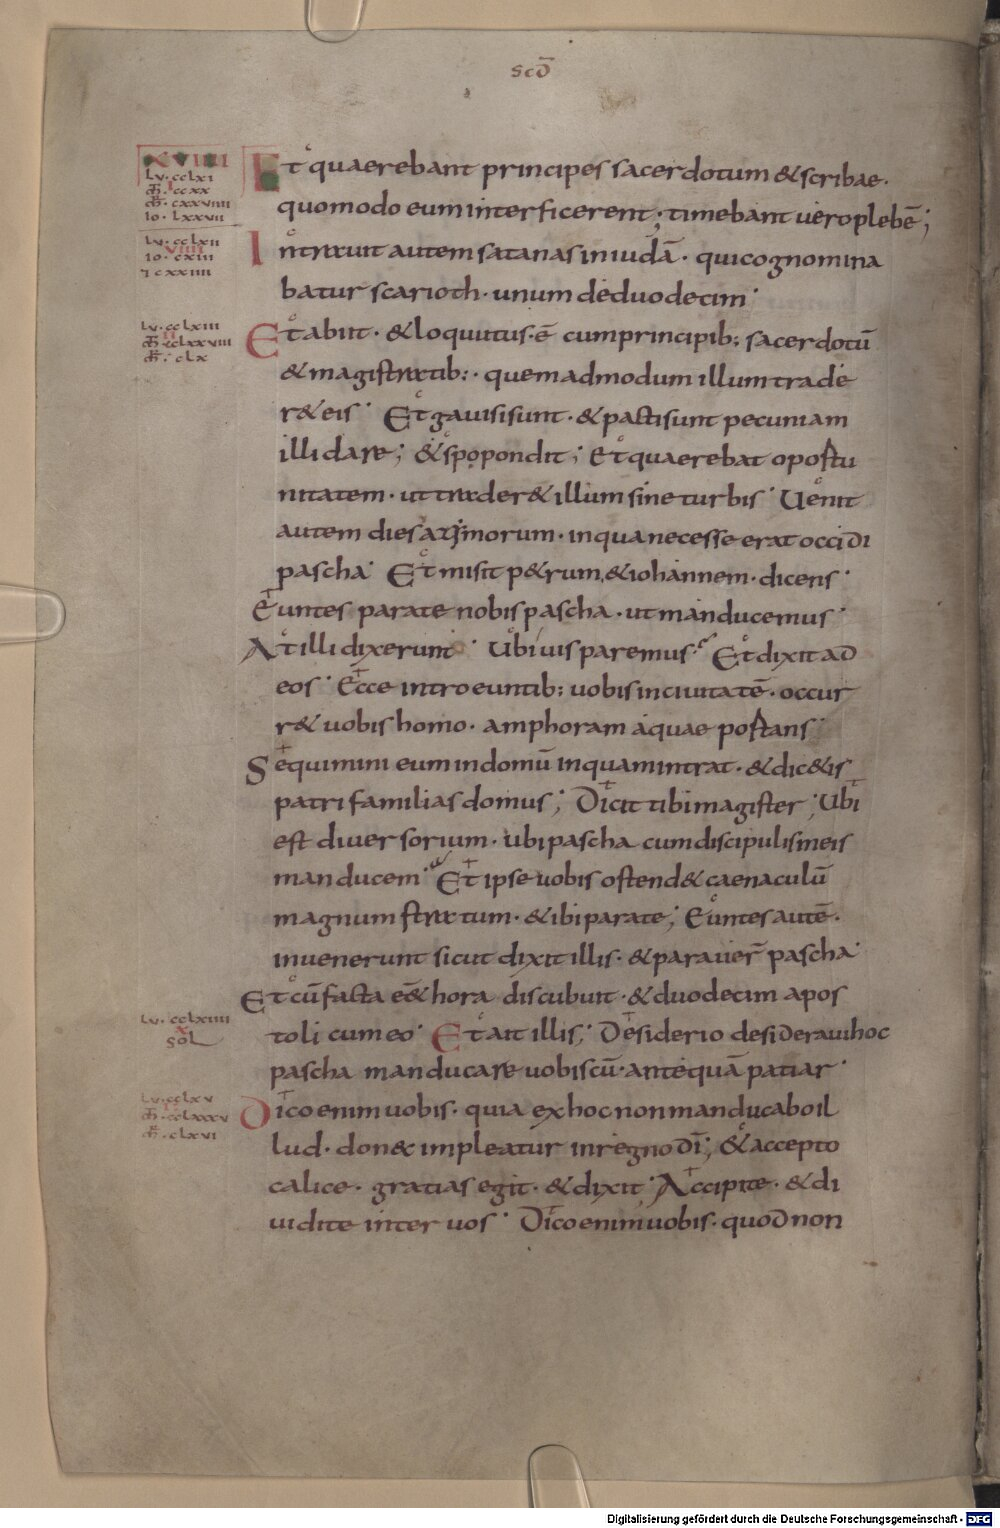 scd̄
XVIIII
Lv·cclxi
m̄·ccxx
m̄·cxxviiii
Io·lxxvii
Et quaerebant principes sacerdotum & scribae·
quomodo eum interficerent; timebant vero plebē;
Lv·cclxii
VIIII
Io·cxiii
7 cxxiiii
Intravit autem satanas in iudā· qui cognomina
batur scarioth· unum de duodecim·
Lv·cclxiii
m̄·cclxxviii
m̄·clx
Et abiit· & loquutus·ē cum principib; sacerdotū
& magistratib:· quemadmodum illum trade
r& eis· Et gavisi sunt· & pacti sunt pecuniam
illi dare; & spopondit; Et quaerebat oportu
nitatem· ut trader& illum sine turbis· Uenit
autem dies azymorum· in qua necesse erat occidi
pascha· Et misit p&rum, & iohannem· dicens·
Euntes parate nobis pascha· ut manducemus·
At illi dixerunt· Ubi vis paremus· Et dixit ad
eos· Ecce introeuntib; vobis in civitatē· occur
r& vobis homo· amphoram aquae portans·
Sequimini eum in domū in qua mintrat· & dic&is
patri familias domus; Dicit tibi magister; Ubi
est diversorium· ubi pascha cum discipulis meis
manducem· Et ipse vobis ostend& caenaculū
magnum stratum· & ibi parate; Euntes autē·
invenerunt sicut dixit illis· & paraver̄ pascha·
Et cū facta eē& hora discubuit· & duodecim apos
Lv·cclxiiii
x
sol
toli cum eo· Et ait illis; Desiderio desideravi hoc
pascha manducare vobiscū· antequā patiar·
Lv·cclxv
m̄·cclxxxv
m̄·clxvi
Dico enim vobis· quia ex hoc non manducabo il
lud· donec impleatur in regno dī; & accepto
calice· gratias egit· & dixit· Accipite· & di
vidite inter vos· Dico enim vobis· quod non
Digitalisierung gefördert durch die Deutsche Forschungsgemeinschaft - DFG